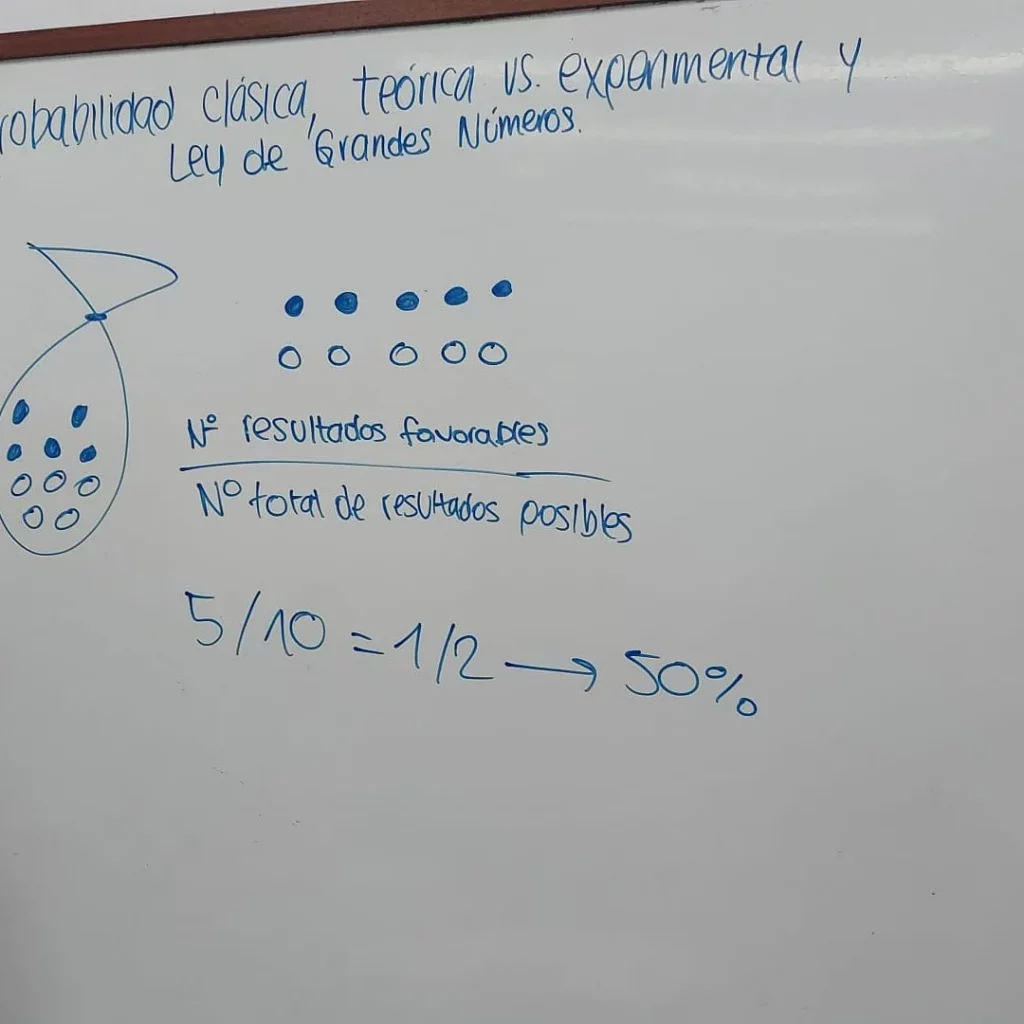 robabilidad clásica, teórica vs. experimental y
Ley de Grandes Números.
Nº resultados favorables
Nº total de resultados posibles
5/10 = 1/2 → 50%